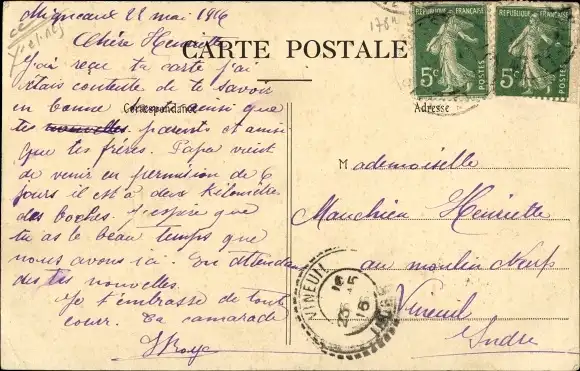 22 mai 1916
Chère Henriette
CARTE POSTALE
J'ai reçu ta carte j'ai
étais contente de te savoir
en bonne santé ainsi que
Correspondance
tes nouvelles parents et ainsi
que tes frères. Papa vient
de venir en permision de 6
jours il est à deux kilomètre
des boches. J'espère que
tu as le beau temps que
nous avons ici. En attendant
des tes nouvelles.
Je t'embrasse de tout
cœur. Ta camarade
RÉPUBLIQUE FRANÇAISE
5c
POSTES
RÉPUBLIQUE FRANÇAISE
5c
POSTES
Adresse
Mademoiselle
Henriette
au moulin Neuf
Vineuil
Indre
VINEUIL
INDRE